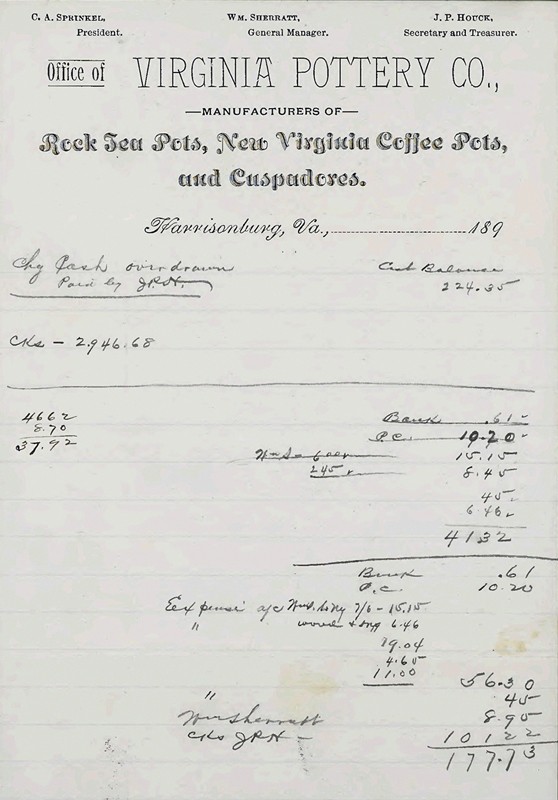 C. A. Sprinkel,
President.
Wm. Sherratt,
General Manager.
J. P. Houck,
Secretary and Treasurer.
Office of VIRGINIA POTTERY CO.,
—MANUFACTURERS OF—
Rock Tea Pots, New Virginia Coffee Pots,
and Cuspadores.
Harrisonburg, Va., 189
Chg Cash overdrawn
Paid by JPH.
Cash Balance
224.35
Cks - 2,946.68
4662
8.70
37.92
Bank .61
P.C. 10.20
15.15
245 8.45
45
6.46
4132
Bank .61
P.C. 10.20
Expense a/c 7/6 - 15.15
" wood 6.46
19.04
4.65
11.00 56.30
" 45
Wm Sherratt 8.95
Cks JPH - 10122
177.73